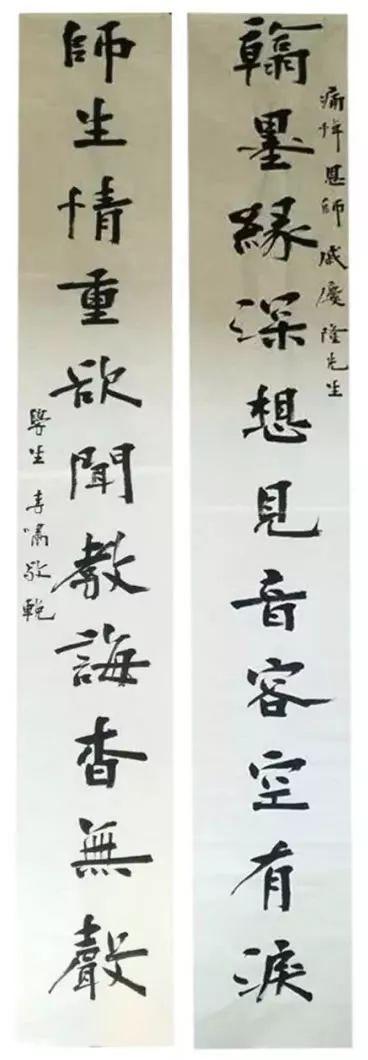 痛悼恩師戚慶隆先生
翰墨緣深想見音容空有淚
師生情重欲聞教誨杳無聲
學生李嘯敬輓